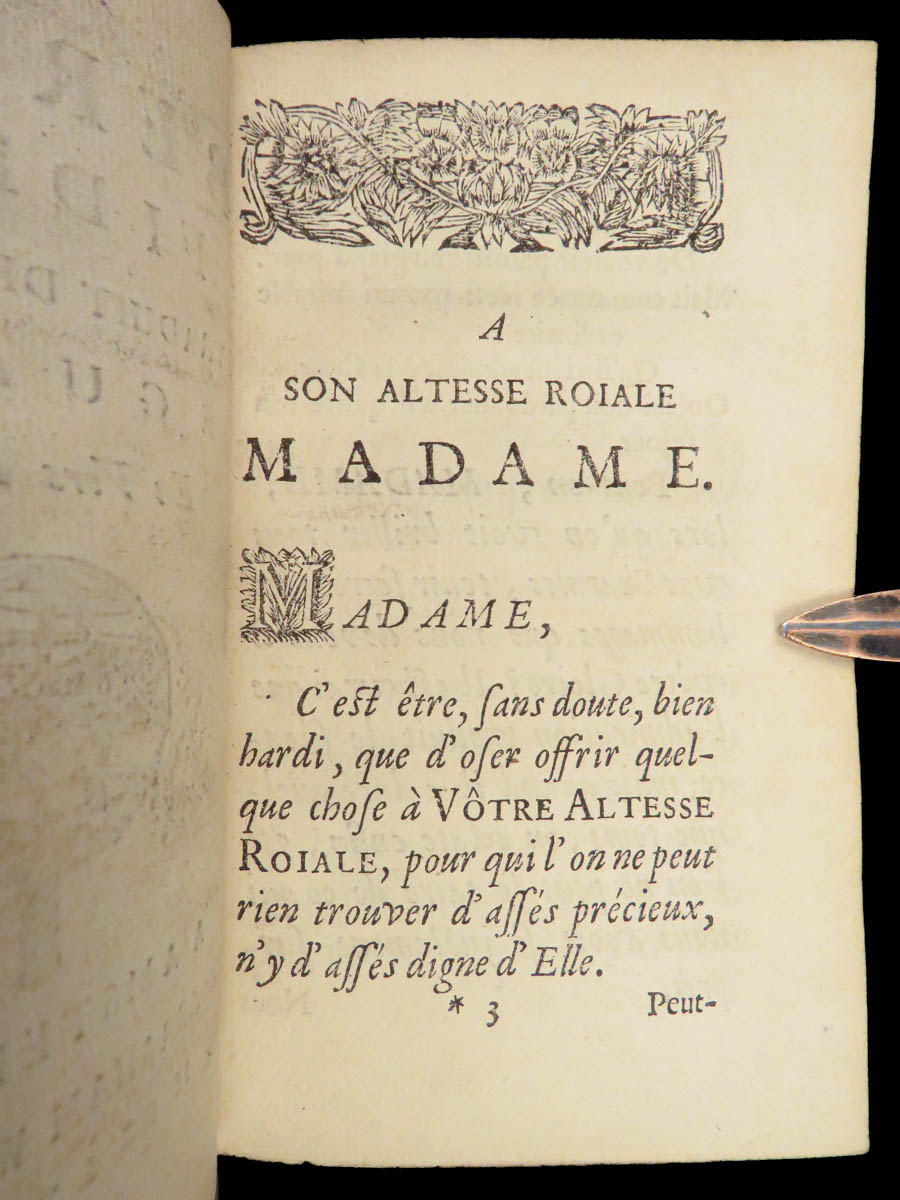 A
SON ALTESSE ROIALE
MADAME.
MADAME,
C'eſt être, ſans doute, bien
hardi, que d'oſer offrir quel-
que choſe à VÔTRE ALTESSE
ROIALE, pour qui l'on ne peut
rien trouver d'aſſés précieux,
n'y d'aſſés digne d'Elle.
* 3 Peut-